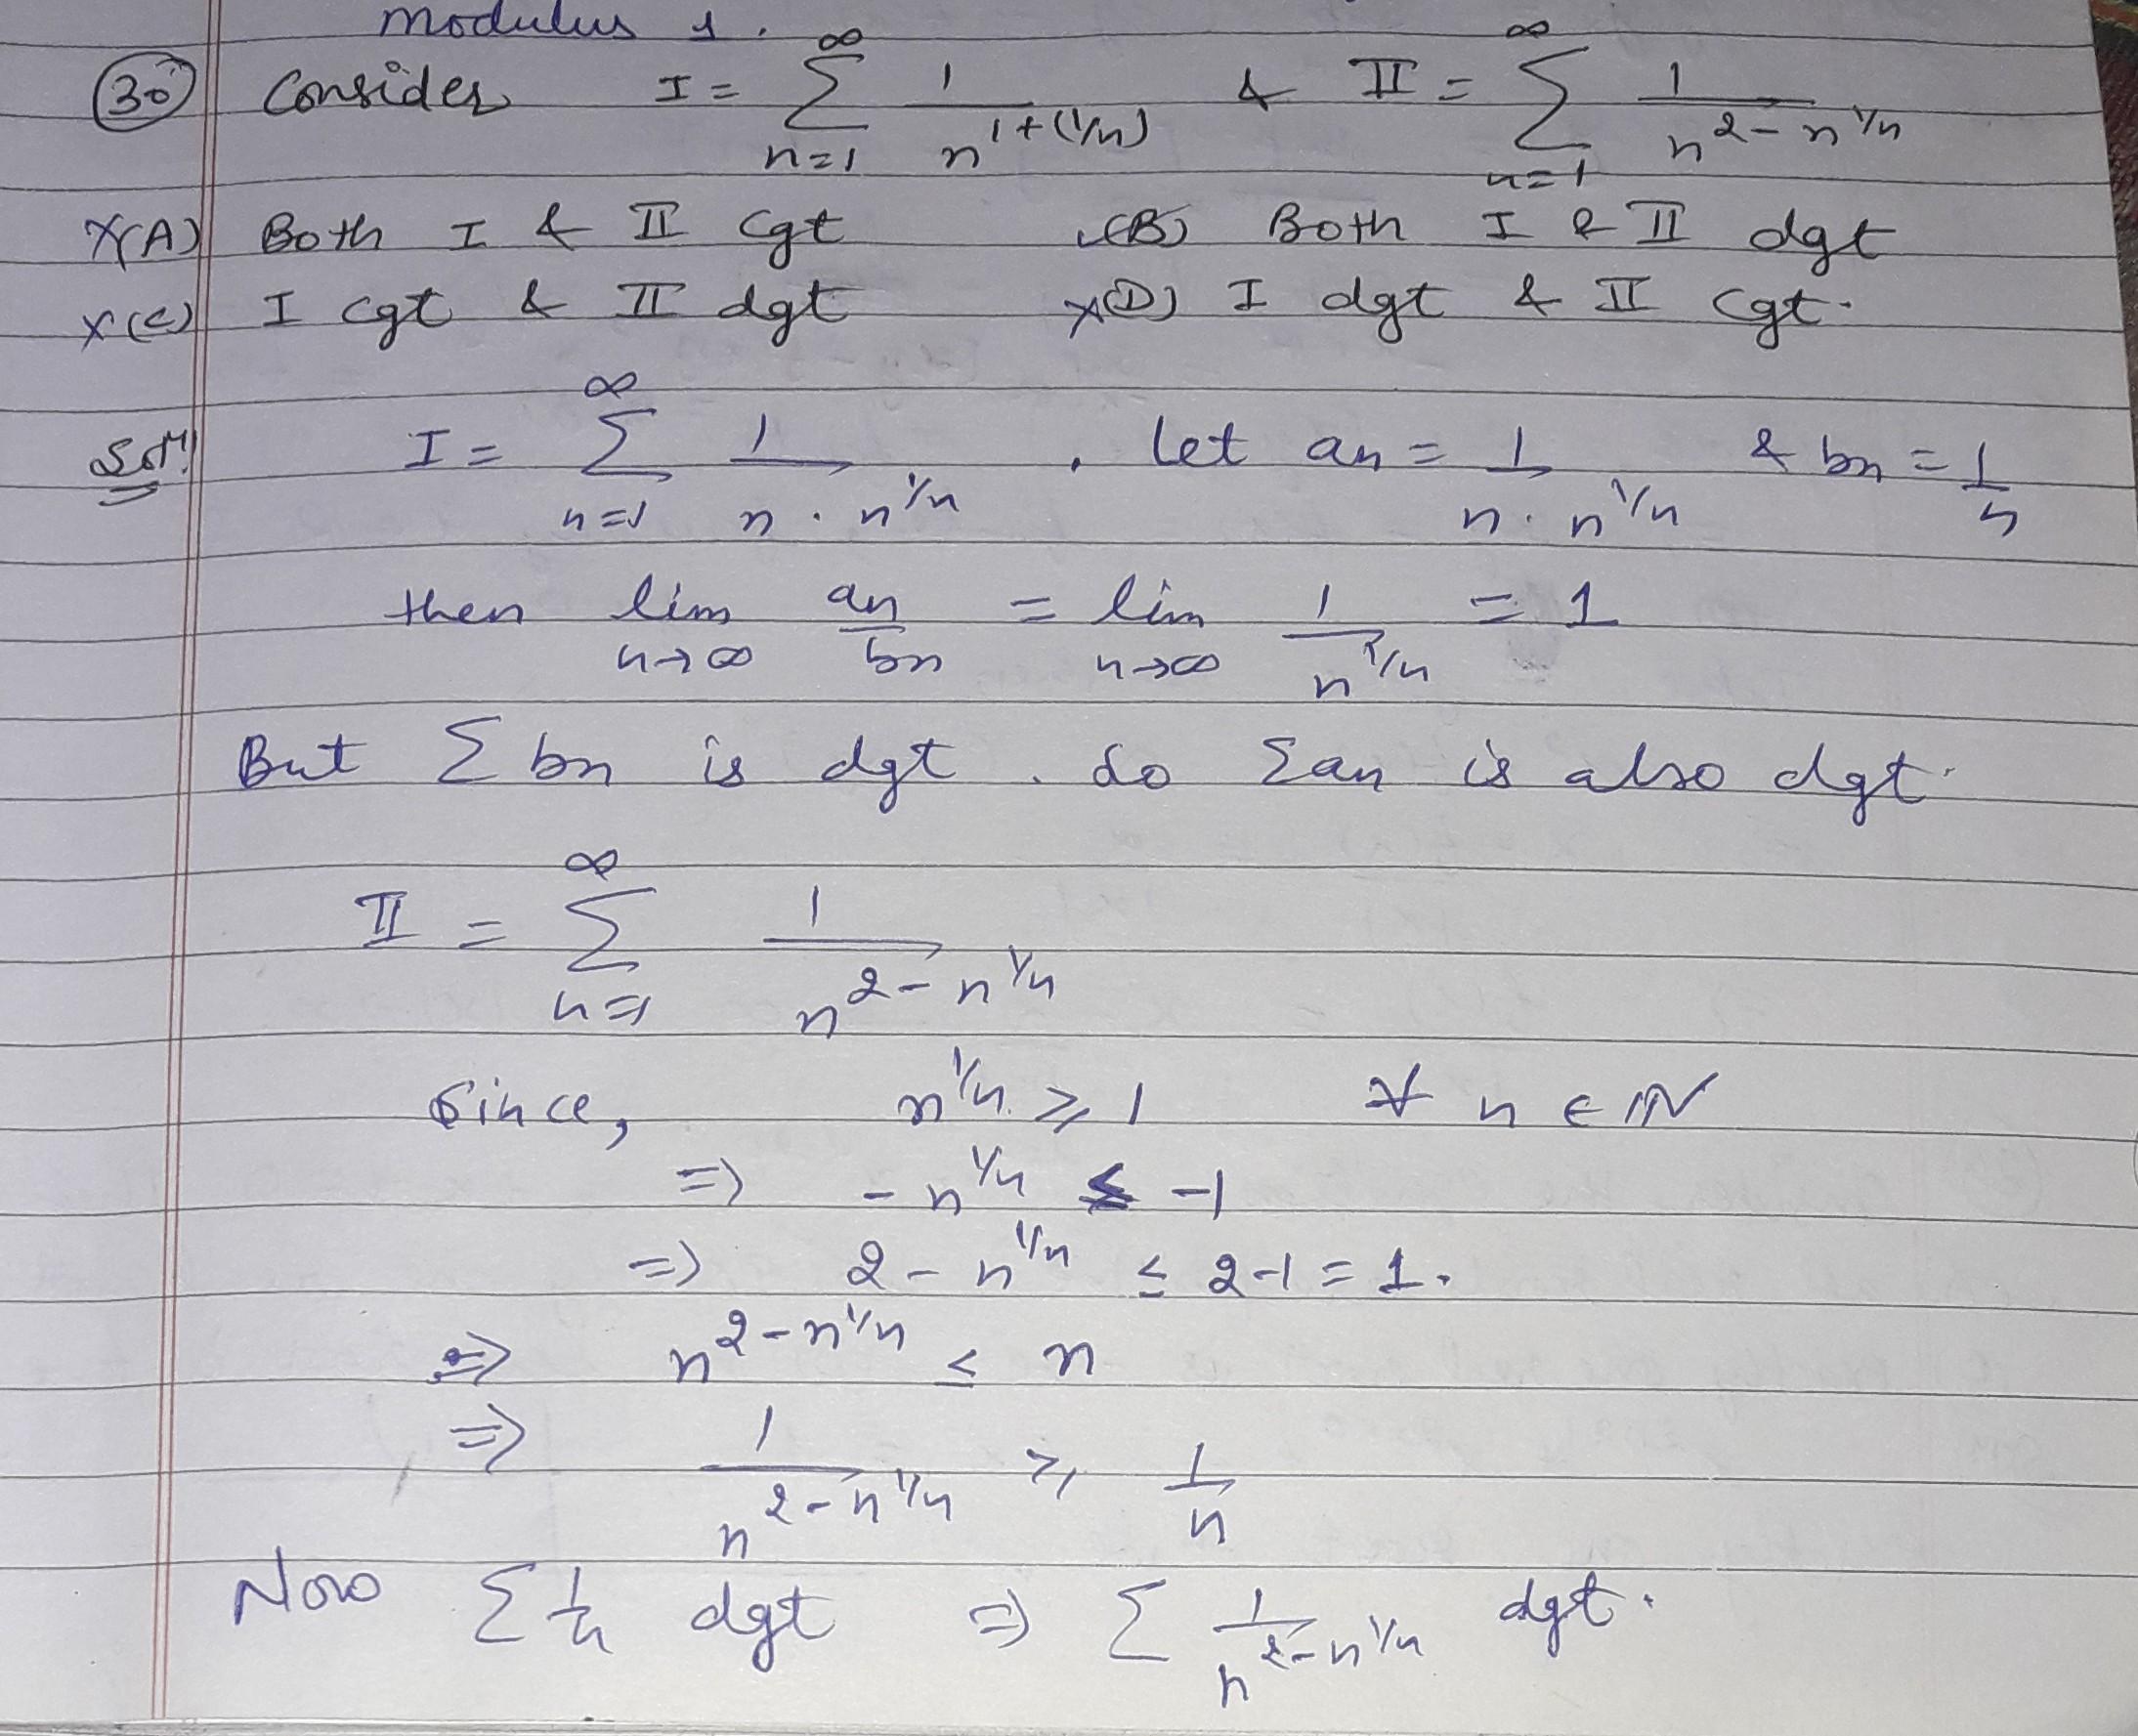 modulus 1.
(30) Consider I = ∑_{n=1}^{∞} 1/n^{1+(1/n)} & II = ∑_{n=1}^{∞} 1/n^{2-n^{1/n}}
×(A) Both I & II cgt (B) Both I & II dgt
×(C) I cgt & II dgt ×(D) I dgt & II cgt.
Solⁿ! I = ∑_{n=1}^{∞} 1/(n·n^{1/n}) . Let an = 1/(n·n^{1/n}) & bn = 1/n
then lim_{n→∞} an/bn = lim_{n→∞} 1/n^{1/n} = 1
But ∑bn is dgt. So ∑an is also dgt.
II = ∑_{n=1}^{∞} 1/n^{2-n^{1/n}}
Since, n^{1/n} ≥ 1 ∀ n ∈ ℕ
⇒ -n^{1/n} ≤ -1
⇒ 2-n^{1/n} ≤ 2-1 = 1.
⇒ n^{2-n^{1/n}} ≤ n
⇒ 1/n^{2-n^{1/n}} ≥ 1/n
Now ∑1/n dgt ⇒ ∑ 1/n^{2-n^{1/n}} dgt.